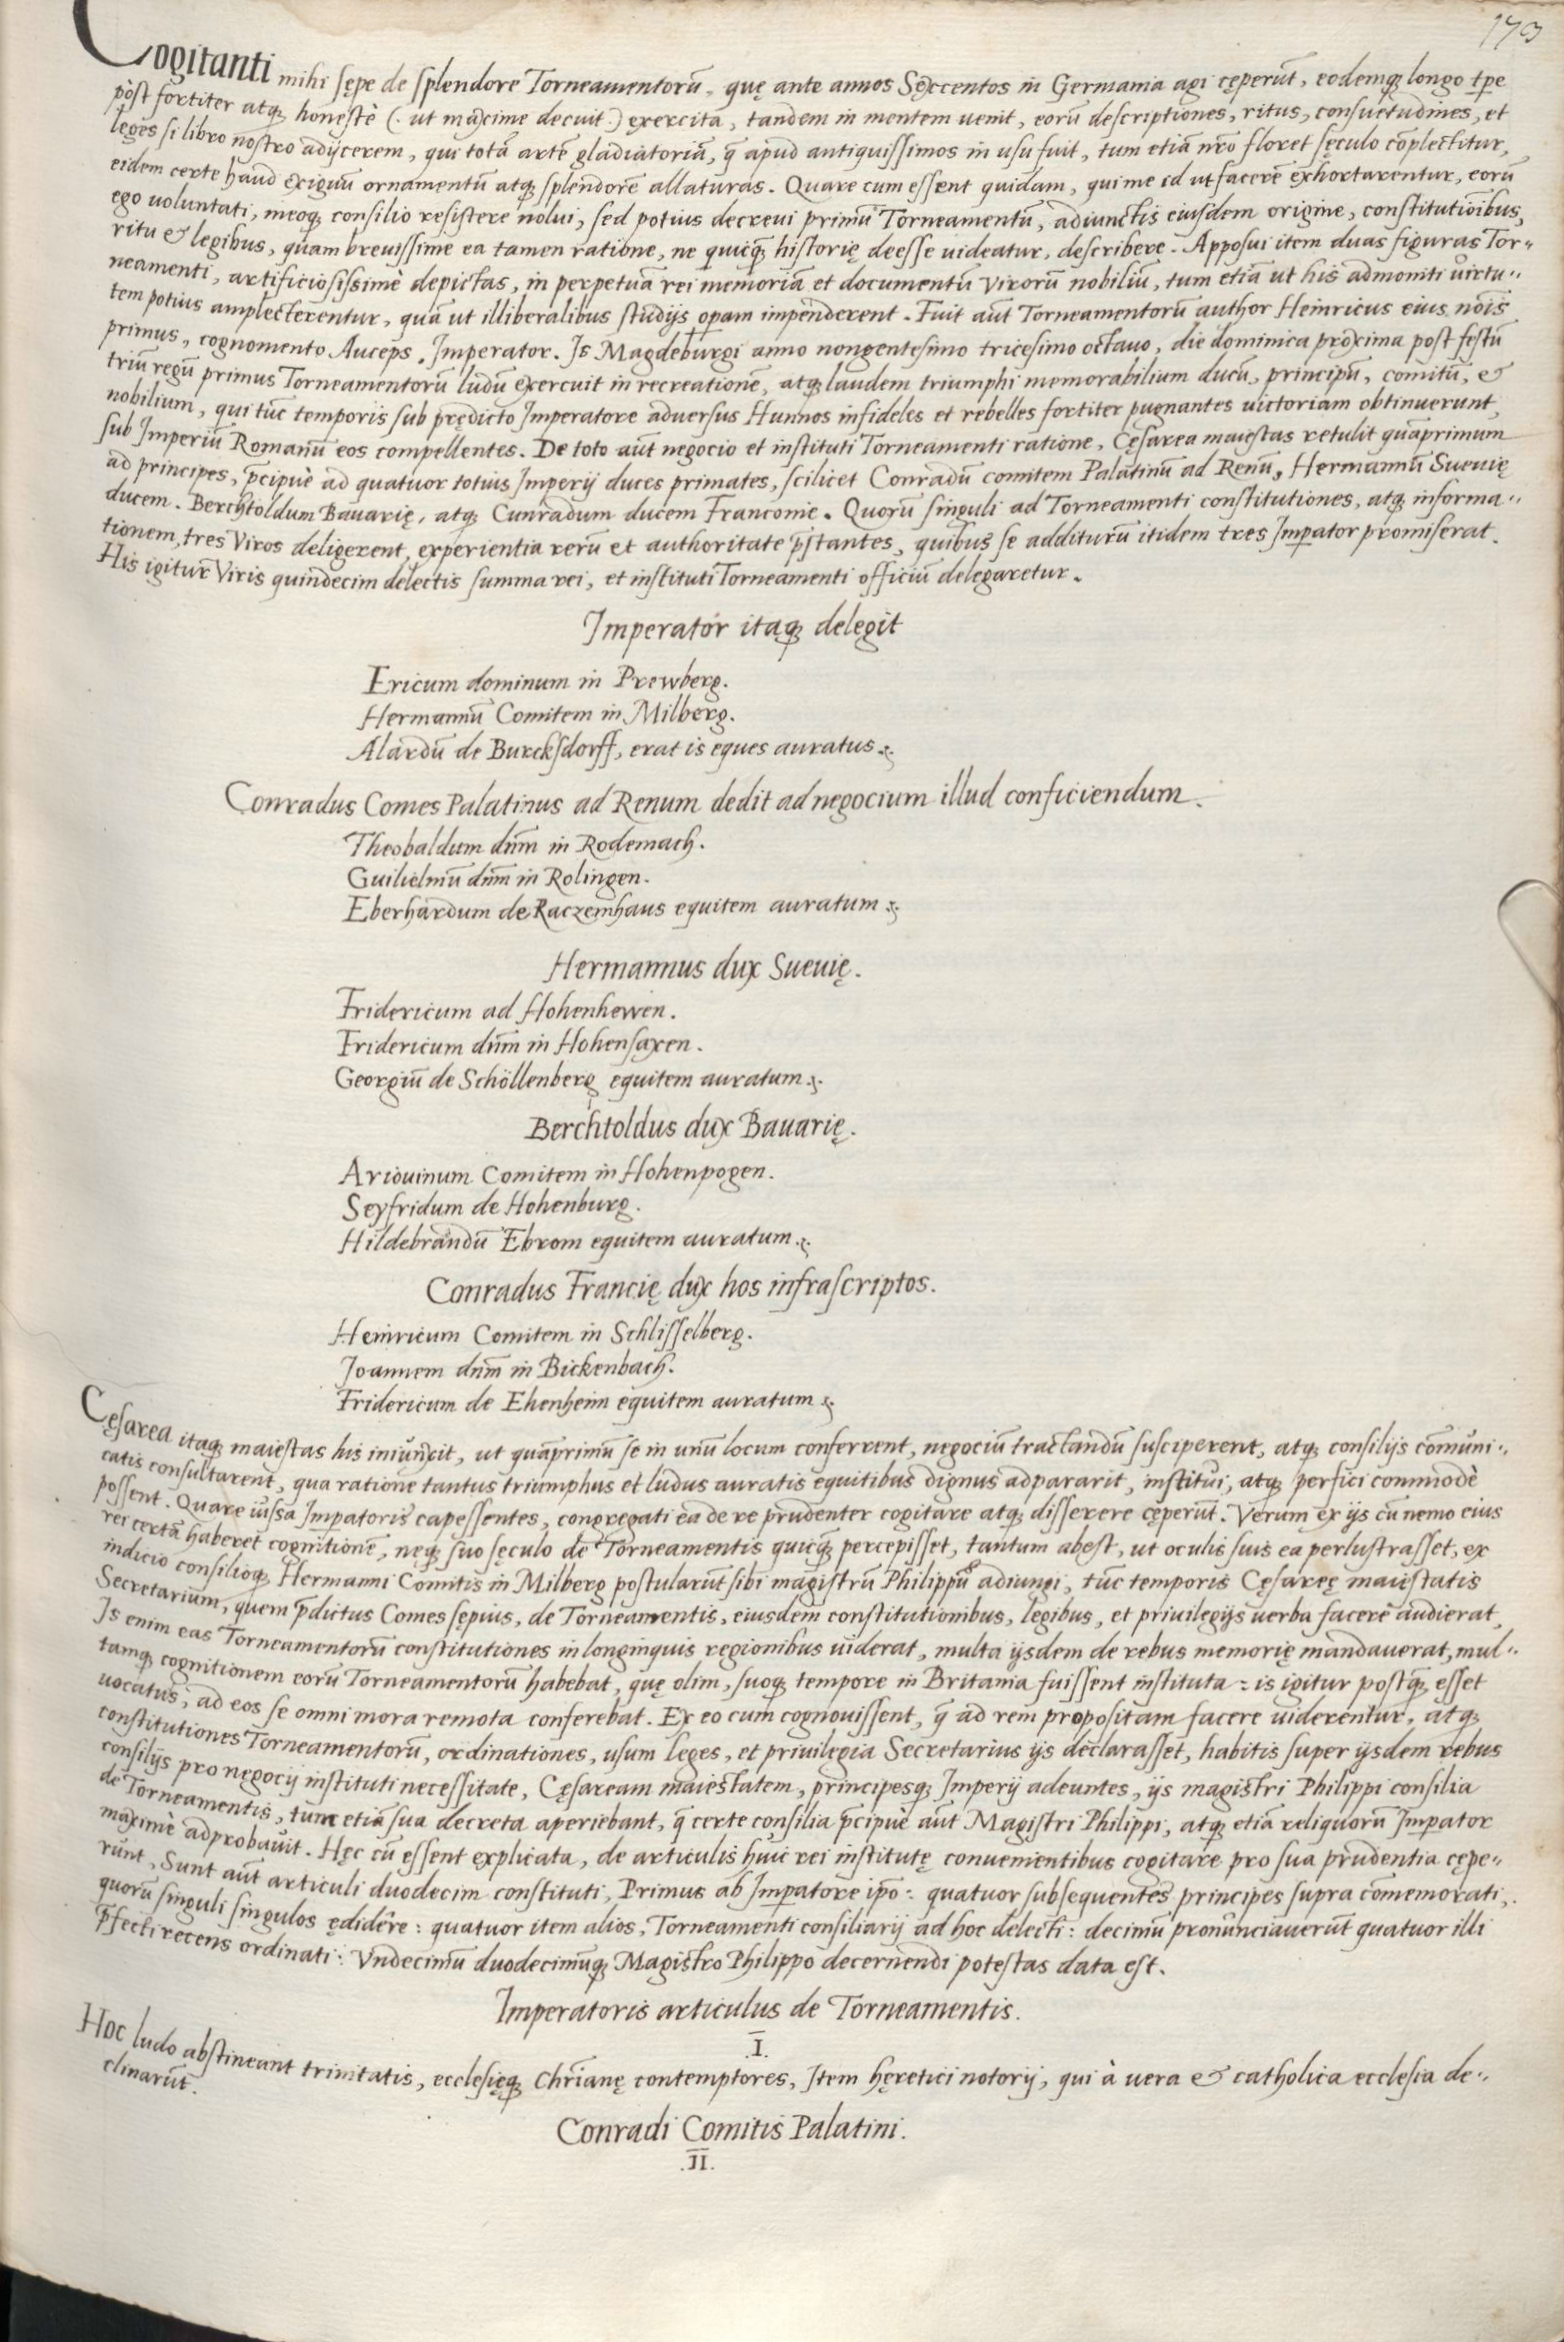 173
Cogitanti mihi sępe de splendore Torneamentorū, quę ante annos Sexcentos in Germania agi cęperūt, eodemq₃ longo tpe
pòst fortiter atq₃ honestè (. ut maxime decuit .) exercita, tandem in mentem uenit, eorū descriptiones, ritus, consuetudines, et
leges si libro nostro adijcerem, qui totā artē gladiatoriā, q̄ apud antiquissimos in usu fuit, tum etiā nr̄o floret sęculo cōplectitur,
eidem certe haud exiguū ornamentū atq₃ splendorē allaturas. Quare cum essent quidam, qui me id ut facerē exhortarentur, eorū
ego uoluntati, meoq₃ consilio resistere nolui, sed potius decreui primū Torneamentū, adiunctis eiusdem origine, constitutiōibus,
ritu & legibus, quam breuissime ea tamen ratione, ne quicq̄₃ historię deesse uideatur, describere. Apposui item duas figuras Tor⸗
neamenti, artificiosissimè depictas, in perpetuā rei memoriā et documentū Virorū nobiliū, tum etiā ut his admoniti uirtu⸗
tem potius amplecterentur, quā ut illiberalibus studijs opam impenderent. Fuit aūt Torneamentorū author Heinricus eius nōis
primus, cognomento Auceps, Imperator. Is Magdeburgi anno nongentesimo tricesimo octauo, die dominica proxima post festū
triū regū primus Torneamentorū ludū exercuit in recreationē, atq₃ laudem triumphi memorabilium ducū, principū, comitū, &
nobilium, qui tūc temporis sub prędicto Imperatore aduersus Hunnos infideles et rebelles fortiter pugnantes uictoriam obtinuerunt,
sub Imperiū Romanū eos compellentes. De toto aūt negocio et instituti Torneamenti ratione, Cęsarea maiestas retulit quāprimum
ad principes, p̄cipuè ad quatuor totius Imperij duces primates, scilicet Conradū comitem Palatinū ad Renū, Hermannū Sueuię
ducem. Berchtoldum Bauarię, atq₃ Cunradum ducem Franconię. Quorū singuli ad Torneamenti constitutiones, atq₃ informa⸗
tionem, tres Viros deligerent, experientia rerū et authoritate p̄stantes, quibus se additurū itidem tres Impator promiserat.
His igitur Viris quindecim delectis summa rei, et instituti Torneamenti officiū delegaretur.
Imperator itaq₃ delegit
Ericum dominum in Prewberg.
Hermannū Comitem in Milberg.
Alardū de Burcksdorff, erat is eques auratus.
Conradus Comes Palatinus ad Renum dedit ad negocium illud conficiendum.
Theobaldum dn̄m in Rodemach.
Guilielmū dn̄m in Rolingen.
Eberhardum de Raczemhaus equitem auratum
Hermannus dux Sueuię.
Fridericum ad Hohenhewen.
Fridericum dn̄m in Hohensaxen.
Georgiū de Schöllenberg equitem auratum.
Berchtoldus dux Bauarię.
Ariouinum Comitem in Hohenpogen.
Seyfridum de Hohenburg.
Hildebrandū Ebrom equitem auratum.
Conradus Francię dux hos infrascriptos.
Heinricum Comitem in Schlisselberg.
Joannem dn̄m in Bickenbach.
Fridericum de Ehenheim equitem auratum
Cęsarea itaq₃ maiestas his iniunxit, ut quāprimū se in unū locum conferrent, negociū tractandū susciperent, atq₃ consilijs cōmuni⸗
catis consultarent, qua ratione tantus triumphus et ludus auratis equitibus dignus adpararit, institui, atq₃ perfici commodè
possent. Quare iussa Impatoris capessentes, congregati ea de re prudenter cogitare atq₃ disserere cęperūt. Verum ex ijs cū nemo eius
rei certā haberet cognitionē, neq₃ suo sęculo de Torneamentis quicq̄₃ percepisset, tantum abest, ut oculis suis ea perlustrasset, ex
indicio consilioq₃ Hermanni Comitis in Milberg postularūt sibi magistrū Philippū adiungi, tūc temporis Cęsareę maiestatis
Secretarium, quem p̄dictus Comes sępius, de Torneamentis, eiusdem constitutionibus, legibus, et priuilegijs uerba facere audierat,
Is enim eas Torneamentorū constitutiones in longinquis regionibus uiderat, multa ijsdem de rebus memorię mandauerat, mul⸗
tamq₃ cognitionem eorū Torneamentorū habebat, quę olim, suoq₃ tempore in Britania fuissent instituta: is igitur postq̄₃ esset
uocatus, ad eos se omni mora remota conferebat. Ex eo cum cognouissent, q̄ ad rem propositam facere uiderentur, atq₃
constitutiones Torneamentorū, ordinationes, usum leges, et priuilegia Secretarius ijs declarasset, habitis super ijsdem rebus
consilijs pro negocij instituti necessitate, Cęsaream maiestatem, principesq₃ Imperij adeuntes, ijs magistri Philippi consilia
de Torneamentis, tum etiā sua decreta aperiebant, q̄ certe consilia p̄cipuè aūt Magistri Philippi, atq₃ etiā reliquorū Impator
maximè adprobauit. Hęc cū essent explicata, de articulis huic rei institutę conuenientibus cogitare pro sua prudentia cępe⸗
runt. Sunt aūt articuli duodecim constituti, Primus ab Impatore ip̄o: quatuor subsequentes principes supra cōmemorati,
quorū singuli singulos ędidêre: quatuor item alios, Torneamenti consiliarij ad hoc delecti: decimū pronūnciauerūt quatuor illi
p̄fecti recens ordinati: Vndecimū duodecimūq₃ Magistro Philippo decernendi potestas data est.
Imperatoris articulus de Torneamentis.
.I.
Hoc ludo abstineant trinitatis, ecclesięq₃ Chr̄ianę contemptores, Item hęretici notorij, qui à uera & catholica ecclesia de⸗
clinarūt.
Conradi Comitis Palatini.
.II.